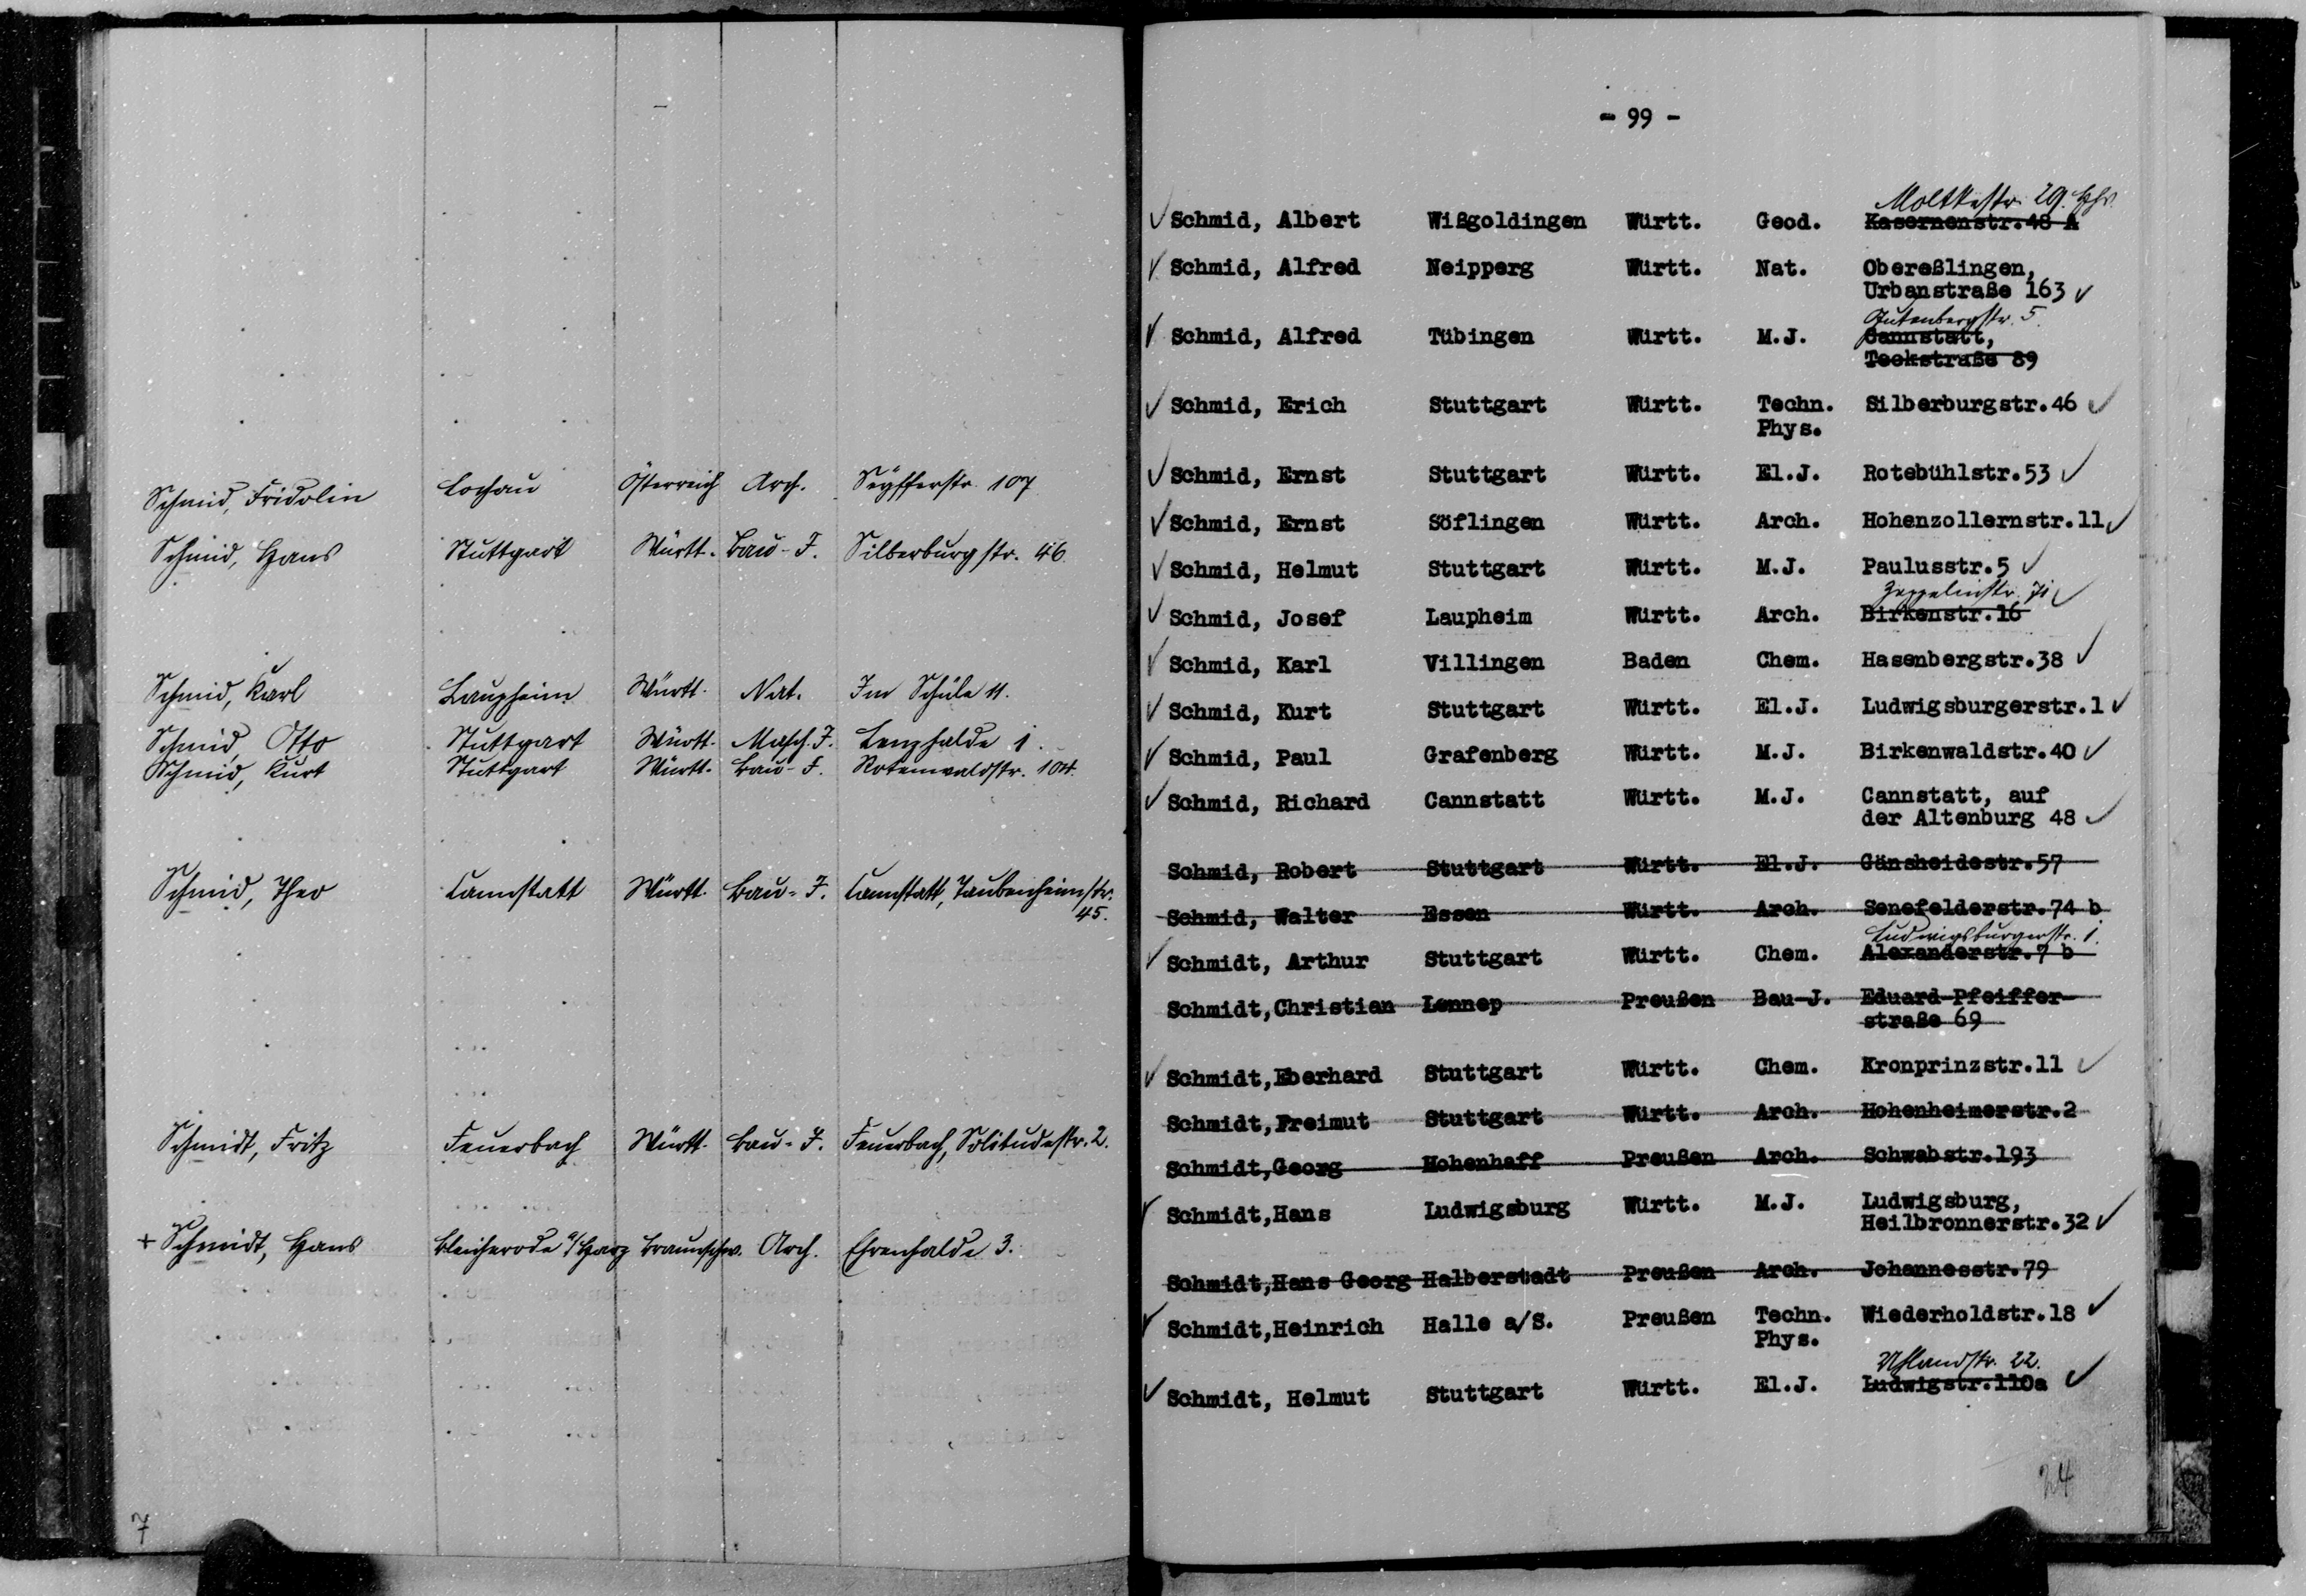 Schmid, Fridolin Lochau Österreich Arch. Seyfferstr. 107
Schmid, Hans Stuttgart Württ. Bau-I. Silberburgstr. 46.
Schmid, Karl Laupheim Württ. Nat. Im Schüle 11.
Schmid, Otto Stuttgart Württ. Masch.I. Lenzhalde 1.
Schmid, Kurt Stuttgart Württ. Bau-I. Rotenwaldstr. 104.
Schmid, Theo Cannstatt Württ. Bau-I. Cannstatt, Taubenheimstr.
45.
Schmidt, Fritz Feuerbach Württ. Bau-I. Feuerbach, Solitudestr. 2.
+ Schmidt, Hans Bleicherode a/Harz Braunschw. Arch. Ehrenhalde 3.
7
- 99 -
Moltkestr. 29. Hhs.
Schmid, Albert Wißgoldingen Württ. Geod. Kasernenstr.48 A
Schmid, Alfred Neipperg Württ. Nat. Obereßlingen,
Urbanstraße 163
Gutenbergstr. 5.
Schmid, Alfred Tübingen Württ. M.J. Cannstatt,
Teckstraße 89
Schmid, Erich Stuttgart Württ. Techn. Silberburgstr.46
Phys.
Schmid, Ernst Stuttgart Württ. El.J. Rotebühlstr.53
Schmid, Ernst Söflingen Württ. Arch. Hohenzollernstr.11
Schmid, Helmut Stuttgart Württ. M.J. Paulusstr.5
Zeppelinstr. 71
Schmid, Josef Laupheim Württ. Arch. Birkenstr.16
Schmid, Karl Villingen Baden Chem. Hasenbergstr.38
Schmid, Kurt Stuttgart Württ. El.J. Ludwigsburgerstr.1
Schmid, Paul Grafenberg Württ. M.J. Birkenwaldstr.40
Schmid, Richard Cannstatt Württ. M.J. Cannstatt, auf
der Altenburg 48
Schmid, Robert Stuttgart Württ. El.J. Gänsheidestr.57
Schmid, Walter Essen Württ. Arch. Senefelderstr.74 b
Ludwigsburgerstr. 1.
Schmidt, Arthur Stuttgart Württ. Chem. Alexanderstr.7 b
Schmidt,Christian Lennep Preußen Bau-J. Eduard-Pfeiffer-
straße 69
Schmidt,Eberhard Stuttgart Württ. Chem. Kronprinzstr.11
Schmidt,Freimut Stuttgart Württ. Arch. Hohenheimerstr.2
Schmidt,Georg Hohenhaff Preußen Arch. Schwabstr.193
Schmidt,Hans Ludwigsburg Württ. M.J. Ludwigsburg,
Heilbronnerstr.32
Schmidt,Hans Georg Halberstadt Preußen Arch. Johannesstr.79
Schmidt,Heinrich Halle a/S. Preußen Techn. Wiederholdstr.18
Phys.
Uhlandstr. 22.
Schmidt, Helmut Stuttgart Württ. El.J. Ludwigstr.110a
24